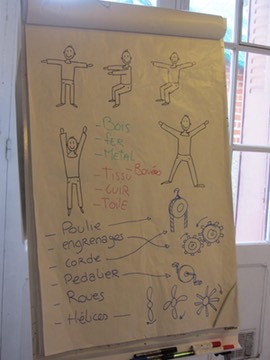 - Bois
- fer
- Métal
- Tissu - Bouées
- Cuir
- Toile
- Poulie
- engrenages
- Corde
- Pedalier
- Roues
- Hélices